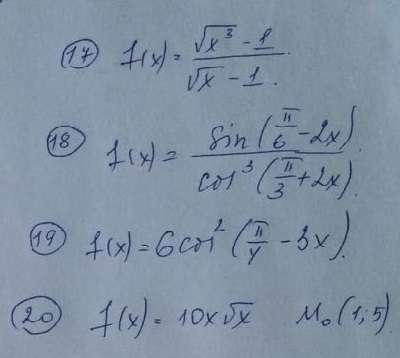 17 f(x) = (√x³ - 1) / (√x - 1).
18 f(x) = sin(π/6 - 2x) / cos³(π/3 + 2x).
19 f(x) = 6cos²(π/4 - 3x).
20 f(x) = 10x√x M₀(1; 5)